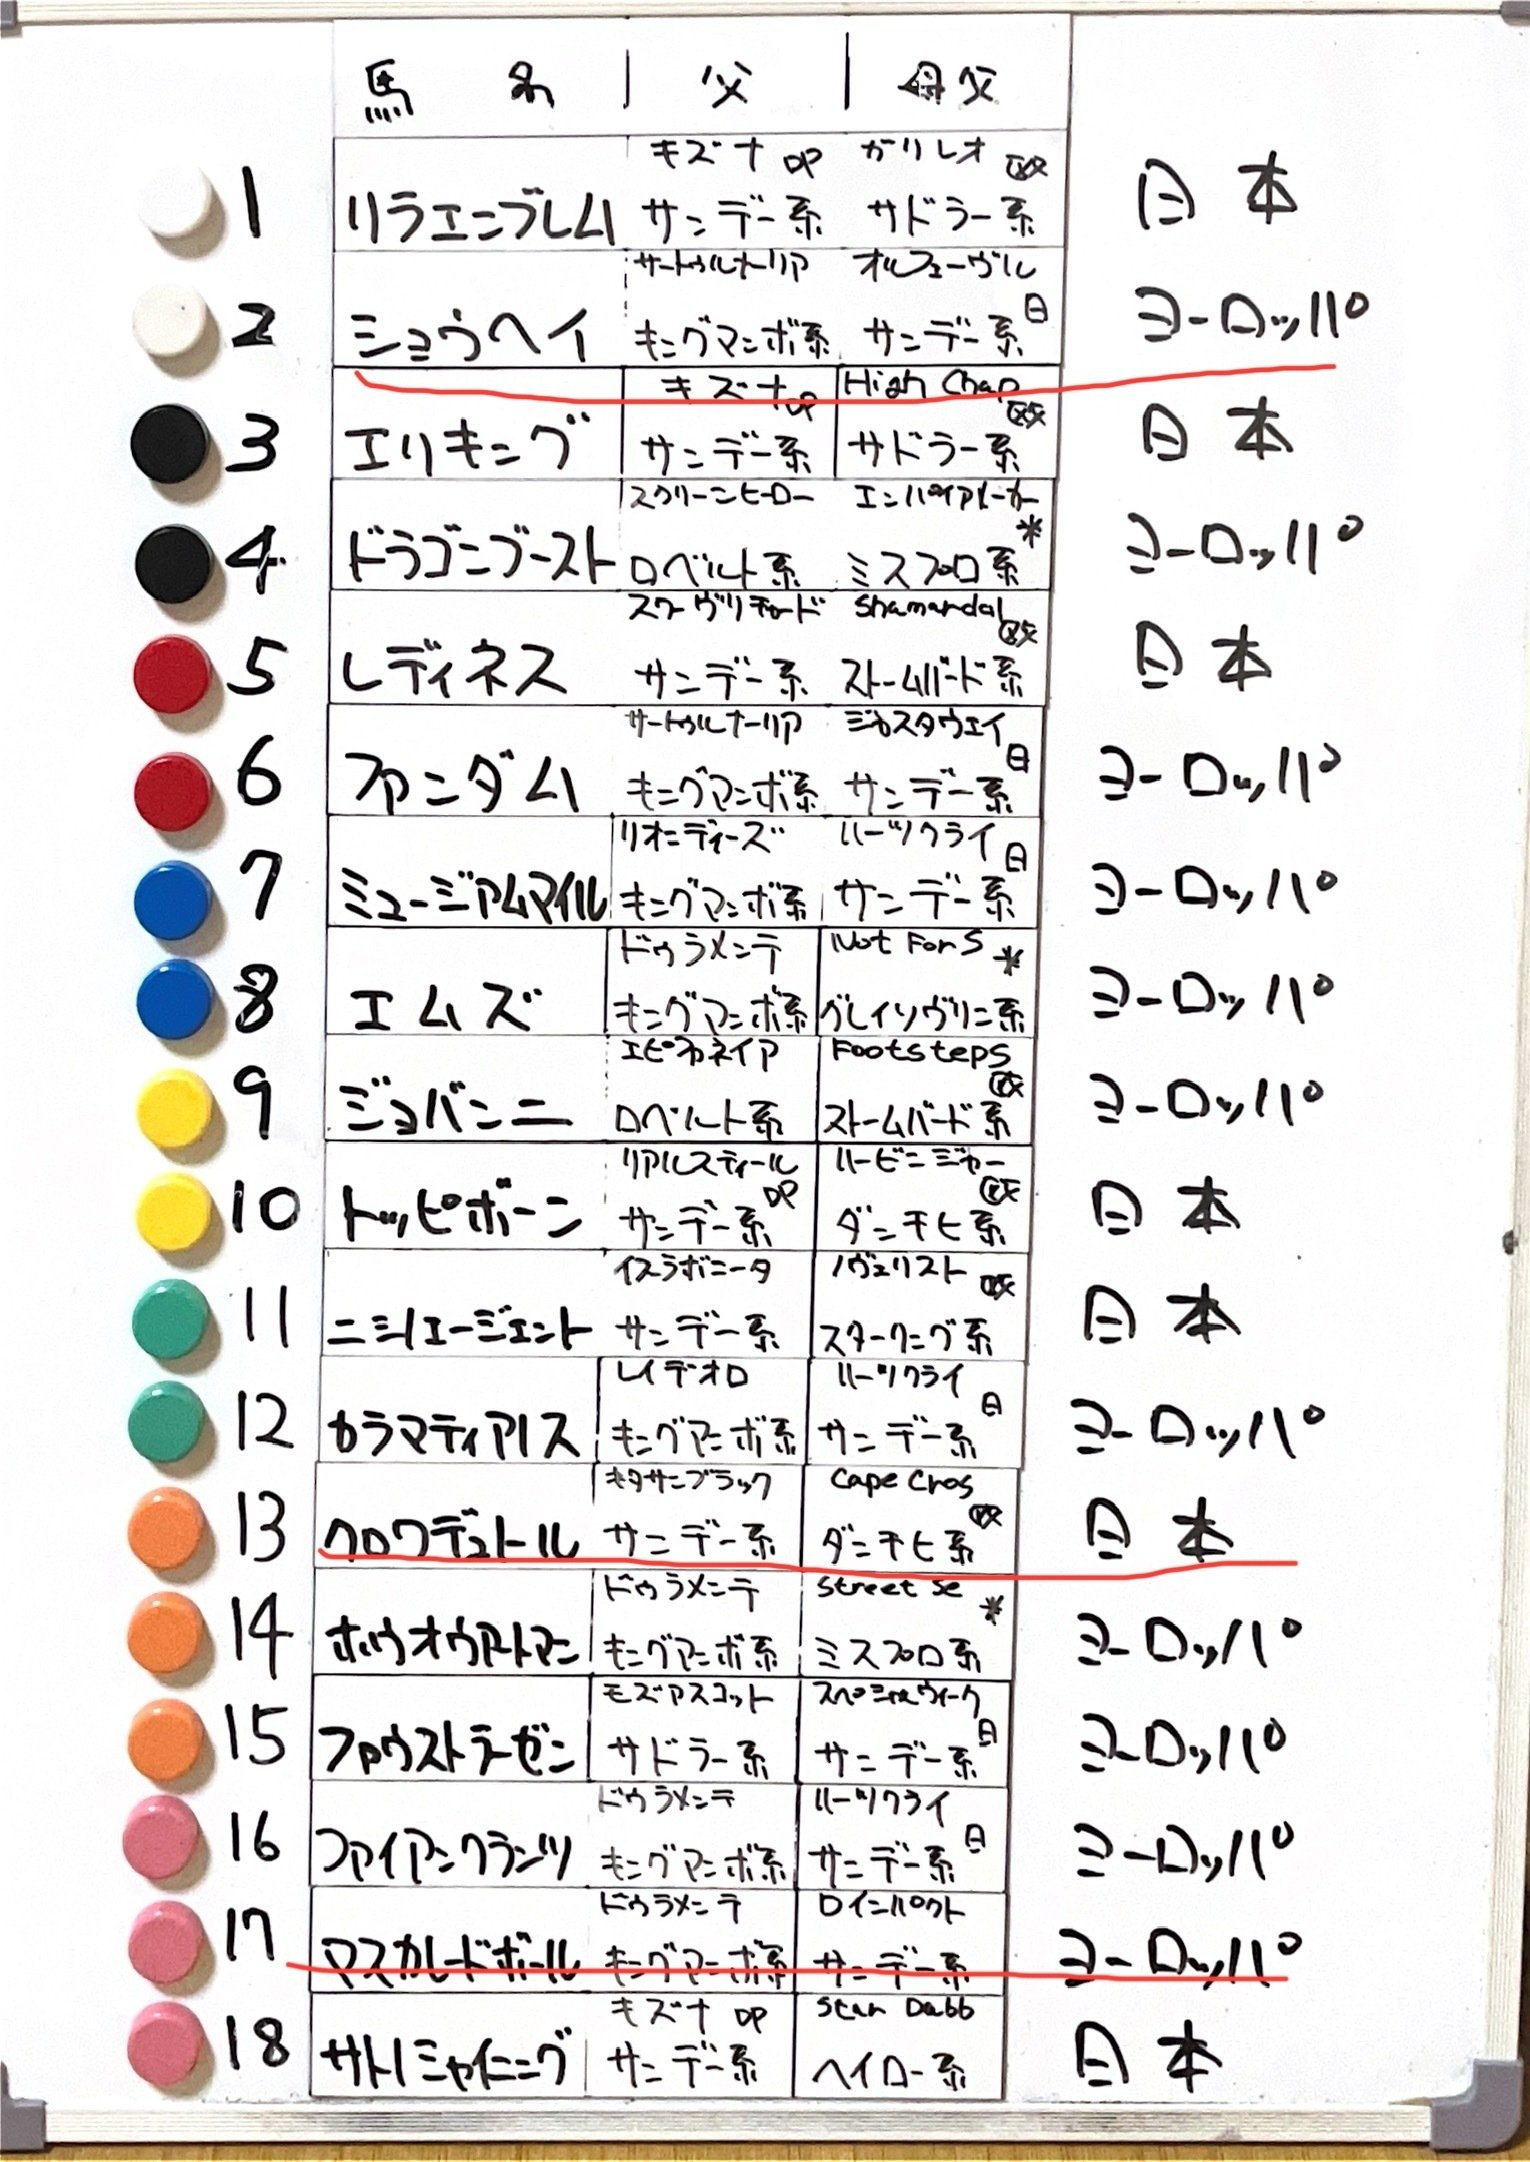 馬 名 父 母父
1 リラエンブレム キズナ DP サンデー系 ガリレオ 欧 サドラー系 日本
2 ショウヘイ サートゥルナーリア キングマンボ系 オルフェーヴル 日 サンデー系 ヨーロッパ
3 エリキング キズナ DP サンデー系 High Chap 欧 サドラー系 日本
4 ドラゴンブースト スクリーンヒーロー ロベルト系 エンパイアメーカー 米 ミスプロ系 ヨーロッパ
5 レディネス スワーヴリチャード サンデー系 Shamardal 欧 ストームバード系 日本
6 ファンダム サートゥルナーリア キングマンボ系 ジャスタウェイ 日 サンデー系 ヨーロッパ
7 ミュージアムマイル リオンディーズ キングマンボ系 ハーツクライ 日 サンデー系 ヨーロッパ
8 エムズ ドゥラメンテ キングマンボ系 Not For S 米 グレイソヴリン系 ヨーロッパ
9 ジョバンニ エピファネイア ロベルト系 Footsteps 欧 ストームバード系 ヨーロッパ
10 トッピボーン リアルスティール DP サンデー系 ハービンジャー 欧 ダンチヒ系 日本
11 ニシノエージェント イスラボニータ サンデー系 ノヴェリスト 欧 スターキング系 日本
12 カラマティアノス レイデオロ キングマンボ系 ハーツクライ 日 サンデー系 ヨーロッパ
13 クロワデュノール キタサンブラック サンデー系 Cape Cros 欧 ダンチヒ系 日本
14 ホウオウアートマン ドゥラメンテ キングマンボ系 Street Se 米 ミスプロ系 ヨーロッパ
15 ファウストラーゼン モズアスコット サドラー系 スペシャルウィーク 日 サンデー系 ヨーロッパ
16 ファイアンクランツ ドゥラメンテ キングマンボ系 ハーツクライ 日 サンデー系 ヨーロッパ
17 マスカレードボール ドゥラメンテ キングマンボ系 Dインパクト サンデー系 ヨーロッパ
18 サトノシャイニング キズナ DP サンデー系 Star Dabb ヘイロー系 日本